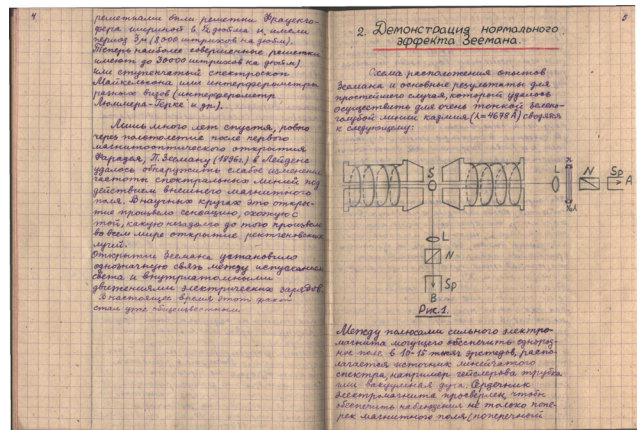 4
решетками были решетки Фраунго-
фера шириной в 1 дюйма и имели
период 3м (8000 штрихов на дюйм).
Теперь наиболее совершенные решетки
имеют до 30000 штрихов на дюйм)
или ступенчатый спектроскоп
Майкельсона или интерферометры
разных видов (интерферометр
Люммера-Герке и др.).
Лишь много лет спустя, ровно
через полстолетие после первого
магнитооптического открытия
Фарадея, П. Зееману (1896г.) в Лейдене
удалось обнаружить слабое изменение
частоты спектральных линий под
действием внешнего магнитного
поля. В научных кругах это откры-
тие произвело сенсацию, схожую с
той, какую незадолго до того произвело
во всем мире открытие рентгеновских
лучей.
Открытие Зеемана установило
однозначную связь между испусканием
света и внутриатомными
движениями электрических зарядов.
В настоящее время этот факт
стал уже общеизвестным.
5
2. Демонстрация нормального
эффекта Зеемана.
Схема расположения опытов
Зеемана и основные результаты для
простейшего случая, который удалось
осуществить для очень тонкой зелено-
голубой линии кадмия (λ=4678Å) сводятся
к следующему:
S
L N Sp
A
L
N
Sp
B
Рис.1.
Между полюсами сильного электро-
магнита могущего обеспечить однород-
ное поле в 10-15 тысяч эрстедов, распо-
лагается источник линейчатого
спектра, например гейслерова трубка
или вакуумная дуга. Сердечник
электромагнита просверлен, чтобы
обеспечить наблюдения не только попе-
рек магнитного поля (поперечный